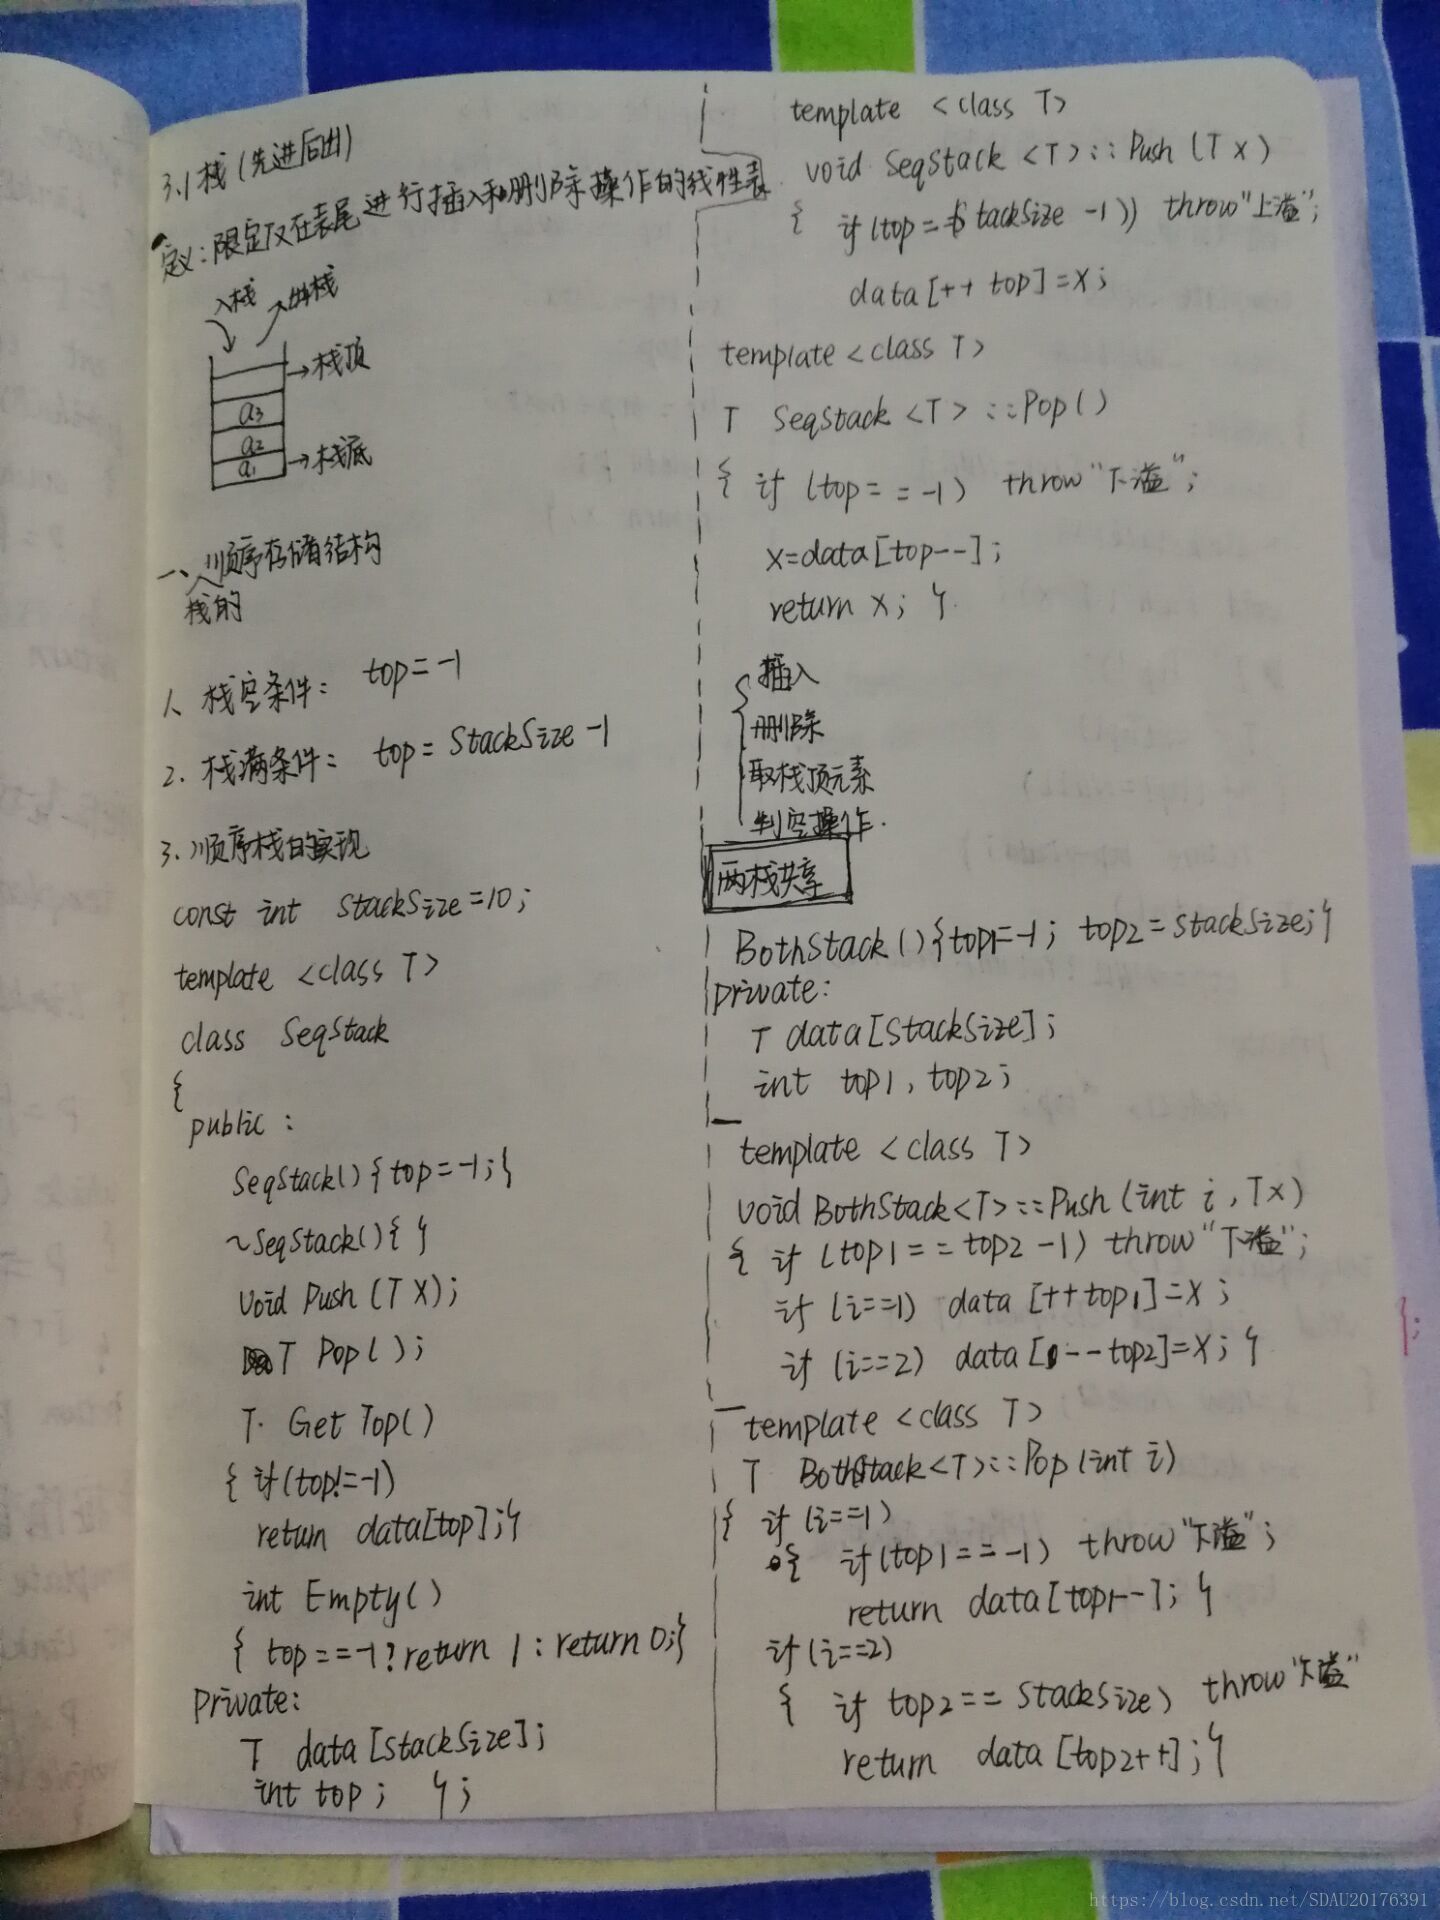 3.1 栈(先进后出)
定义:限定仅在表尾进行插入和删除操作的线性表
入栈 出栈
→栈顶
a3
a2
a1 →栈底
一、顺序存储结构
栈的
1、栈空条件: top=-1
2.栈满条件: top=StackSize-1
3.顺序栈的实现
const int StackSize=10;
template <class T>
class SeqStack
{
public:
SeqStack(){top=-1;}
~SeqStack(){}
void Push(T x);
T Pop();
T. GetTop()
{if(top!=-1)
return data[top];}
int Empty()
{top==-1?return 1:return 0;}
private:
T data[StackSize];
int top; };
template <class T>
void SeqStack<T>::Push(T x)
{ if(top= StackSize-1)) throw"上溢";
data[++top]=x;
template<class T>
T SeqStack<T>::Pop()
{ if (top==-1) throw"下溢";
x=data[top--];
return x; }
插入
删除
取栈顶元素
判空操作.
两栈共享
BothStack(){top1=-1; top2=StackSize;}
private:
T data[StackSize];
int top1, top2;
template <class T>
void BothStack<T>::Push(int i, T x)
{ if (top1==top2-1) throw"下溢";
if (i==1) data[++top1]=x;
if (i==2) data[--top2]=x; }
template <class T>
T BothStack<T>::Pop(int i)
{ if (i==1)
{ if(top1==-1) throw"下溢";
return data[top1--]; }
if(i==2)
{ if top2==StackSize) throw"下溢"
return data[top2++];}
https://blog.csdn.net/SDAU20176391